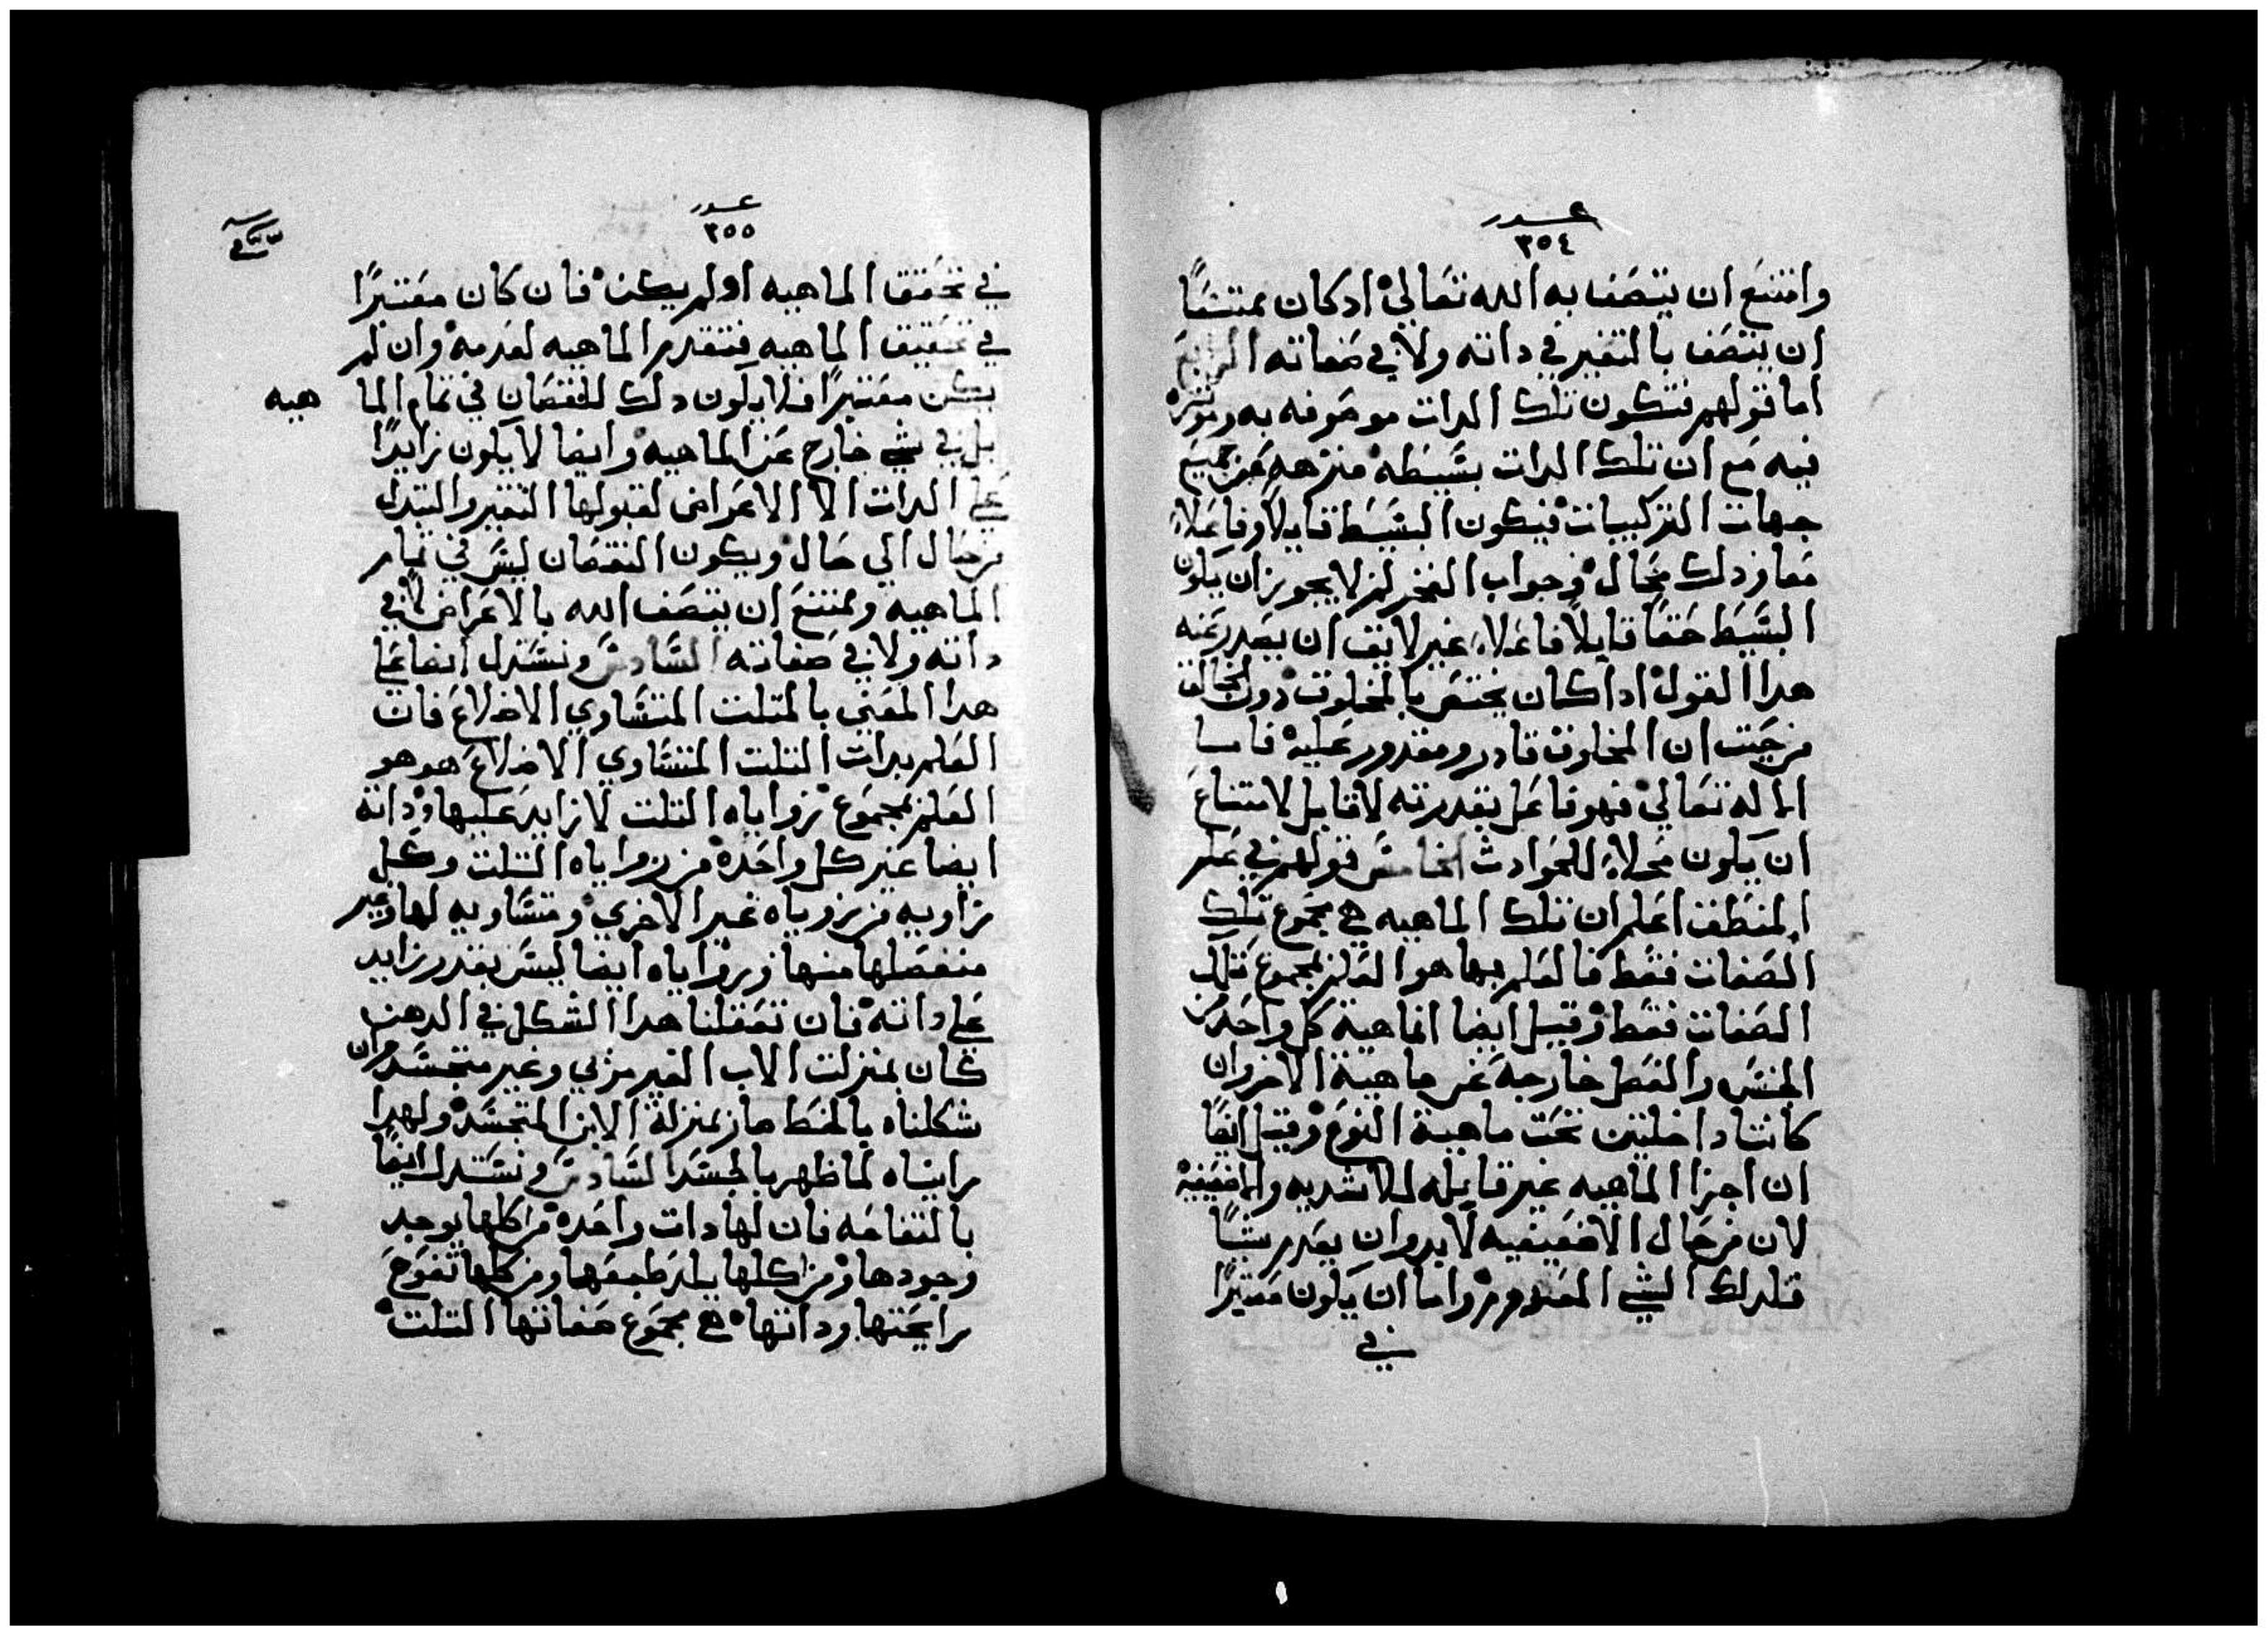 عدد
٣٥٤
وامتنع ان يتصف به الله تعالي اد كان ممتنعًا
ان يتصف بالتغير في داته ولا في صفاته الرابع
اما قولهم فتكون تلك الدات موصوفه به وموتره
فيه مع ان تلك الدات بسيطه منزهه عن جميع
جهات التركيبات فيكون البسيط قابلاً وفاعلاً
معا ودلك محال وجواب الفخر لم لا يجوز ان يكون
البسيط حقًا قابلاً فاعلاً غير لايق ان يصدر عنه
هدا القول ادا كان يختص بالمخلوق دون الخالق
من حيت ان المخلوق قادر ومقدور عليه فاما
الاله تعالي فهو فاعل بقدرته لا قابل لامتناع
ان يكون محلاً للحوادث الخامس قولهم في علم
المنطق اعلم ان تلك الماهيه هي مجموع تلك
الصفات فقط فالعلم بها هو العلم بمجموع تلك
الصفات فقط وقيل ايضا ان ماهية كل واحد من
الجنس والفصل خارجة عن ماهية الاخر وان
كانتا داخلتين تحت ماهية النوع وقيل ايضًا
ان اجزا الماهيه غير قابله للاشديه والاضعفيه
لان من حال الاضعيفيه لابد وان يعدم شيًا
فلدلك الشي المعدوم واما ان يكون معتبرًا
في
عدد
٣٥٥
في تحقق الماهيه او لم يكن فان كان معتبرًا
في تحقيق الماهيه فتنعدم الماهيه لعدمه وان لم
يكن معتبرًا فلا يكون دلك النقصان في تمام الما هيه
بل في شي خارج عن الماهيه وايضا لا يكون زايدًا
علي الدات الا الاعراض لقبولها التغير والتبدل
من حال الي حال ويكون النقصان ليس في تمام
الماهيه ويمتنع ان يتصف الله بالاعراض لا في
داته ولا في صفاته السادس ونستدل ايضا علي
هدا المعني بالمتلت المتساوي الاضلاع فان
العلم بدات التلت المتساوي الاضلاع هو هو
العلم بمجموع زواياه التلت لا زايد عليها وداته
ايضا غير كل واحدة من زواياه التلت وكل
زاويه من زوياه غير الاخري ومتساويه لها وغير
منفصلها منها وزواياه ايضا ليس بقدر زايد
علي داته فان تعقلنا هدا الشكل في الدهن
كان بمنزلت الاب الغير مري وغير متجسد وان
شكلناه بالخط صار بمنزلة الابن المتجسد ولهدا
رايناه لما ظهر بالجسد السادس ونستدل ايضًا
بالتفاحه فان لها دات واحده من كلها يوجد
وجودها ومن كلها يلد طعمها ومن كلها تفوح
رايحتها وداتها هي مجموع صفاتها التلت